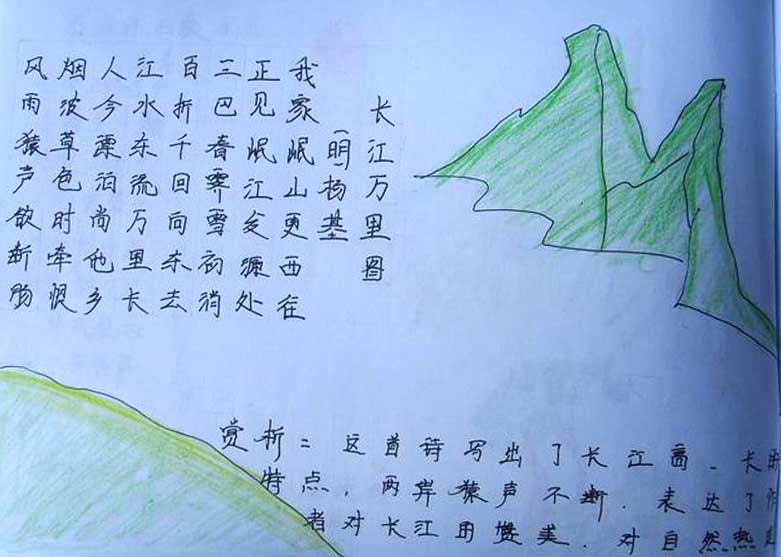 长江万里图
(明杨基
我家岷山更西往
正见岷江发源处
三巴春霁雪初消
百折千回向东去
江水东流万里长
人今漂泊尚他乡
烟波草色时牵恨
风雨猿声欲断肠
赏析：这首诗写出了长江高、长的
特点，两岸猿声不断．表达了作
者对长江的赞美．对自然热